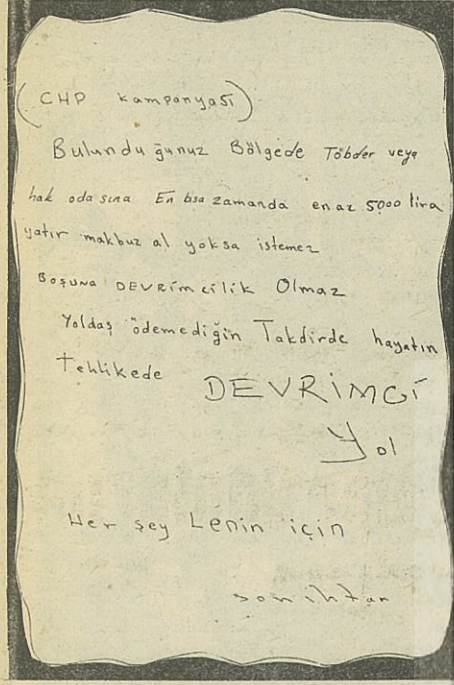 (CHP kampanyası)
Bulunduğunuz Bölgede Töbder veya
hak odasına En kısa zamanda en az 5000 lira
yatır makbuz al yoksa istemez
Boşuna DEVRİMCİLİK Olmaz
Yoldaş ödemediğin Takdirde hayatın
tehlikede DEVRİMCİ
Yol
Her şey Lenin için
son ihtar